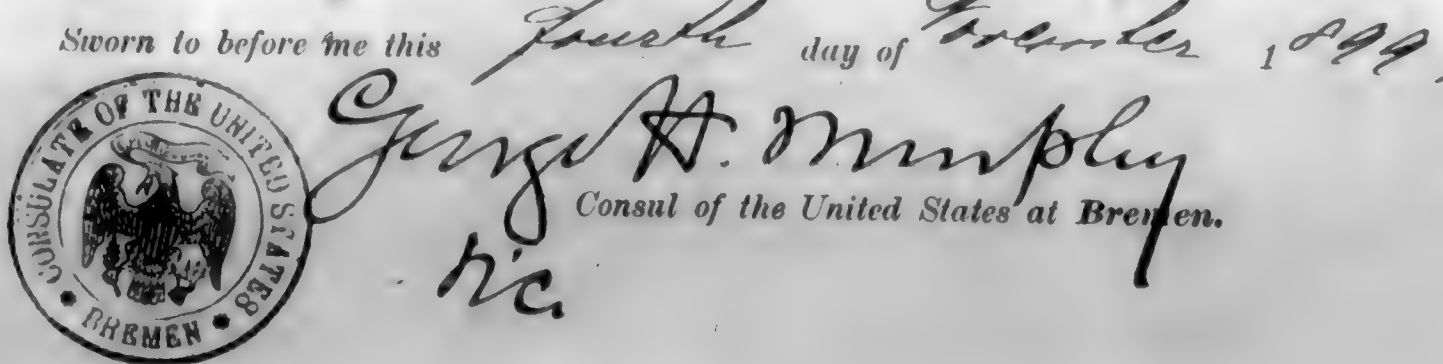 Sworn to before me this fourth day of November 1899,
George H. Murphy
Consul of the United States at Bremen.
CONSULATE OF THE UNITED STATES
BREMEN